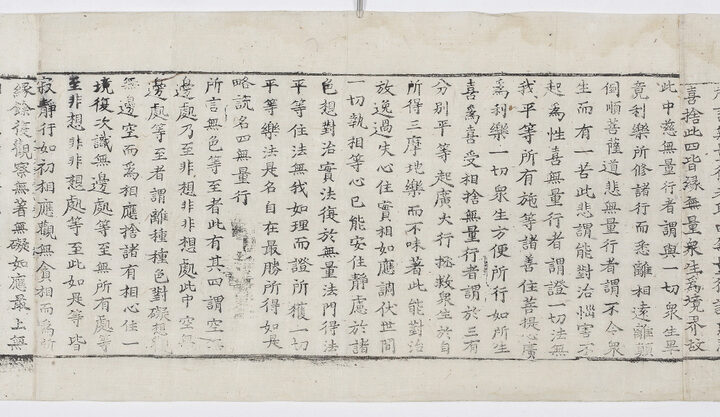 喜捨此四皆緣無量衆生為境界故
此中慈無量行者謂與一切衆生畢
竟利樂所修諸行而悉離相遠離顛
倒順菩薩道悲無量行者謂不令衆
生而有一苦此悲謂能對治惱害不
起為性喜無量行者謂證一切法無
我平等所有施等諸善住菩提心廣
為利樂一切衆生方便所行如所生
喜為喜受相捨無量行者謂於三有
分別平等起廣大行拯救衆生於自
所得三摩地樂而不味著此能對治
放逸過失心住實相如應調伏世間
一切執相等心已能安住靜慮於諸
色想對治實法復於無量法門得法
平等住法無我如理而證所獲一切
平等樂法是名自在最勝所得如是
略說名四無量行
所言無色等至者此有其四謂空無
邊處乃至非想非非想處此中空無
邊處等至者謂離種種色對礙想
無邊空而為相應捨諸有相心住一
境復次識無邊處等至無所有處等
至非想非非想處等至此如是等皆
寂靜行如初相應觀無貪相而為所
緣餘從觀察無著無礙如應最上無